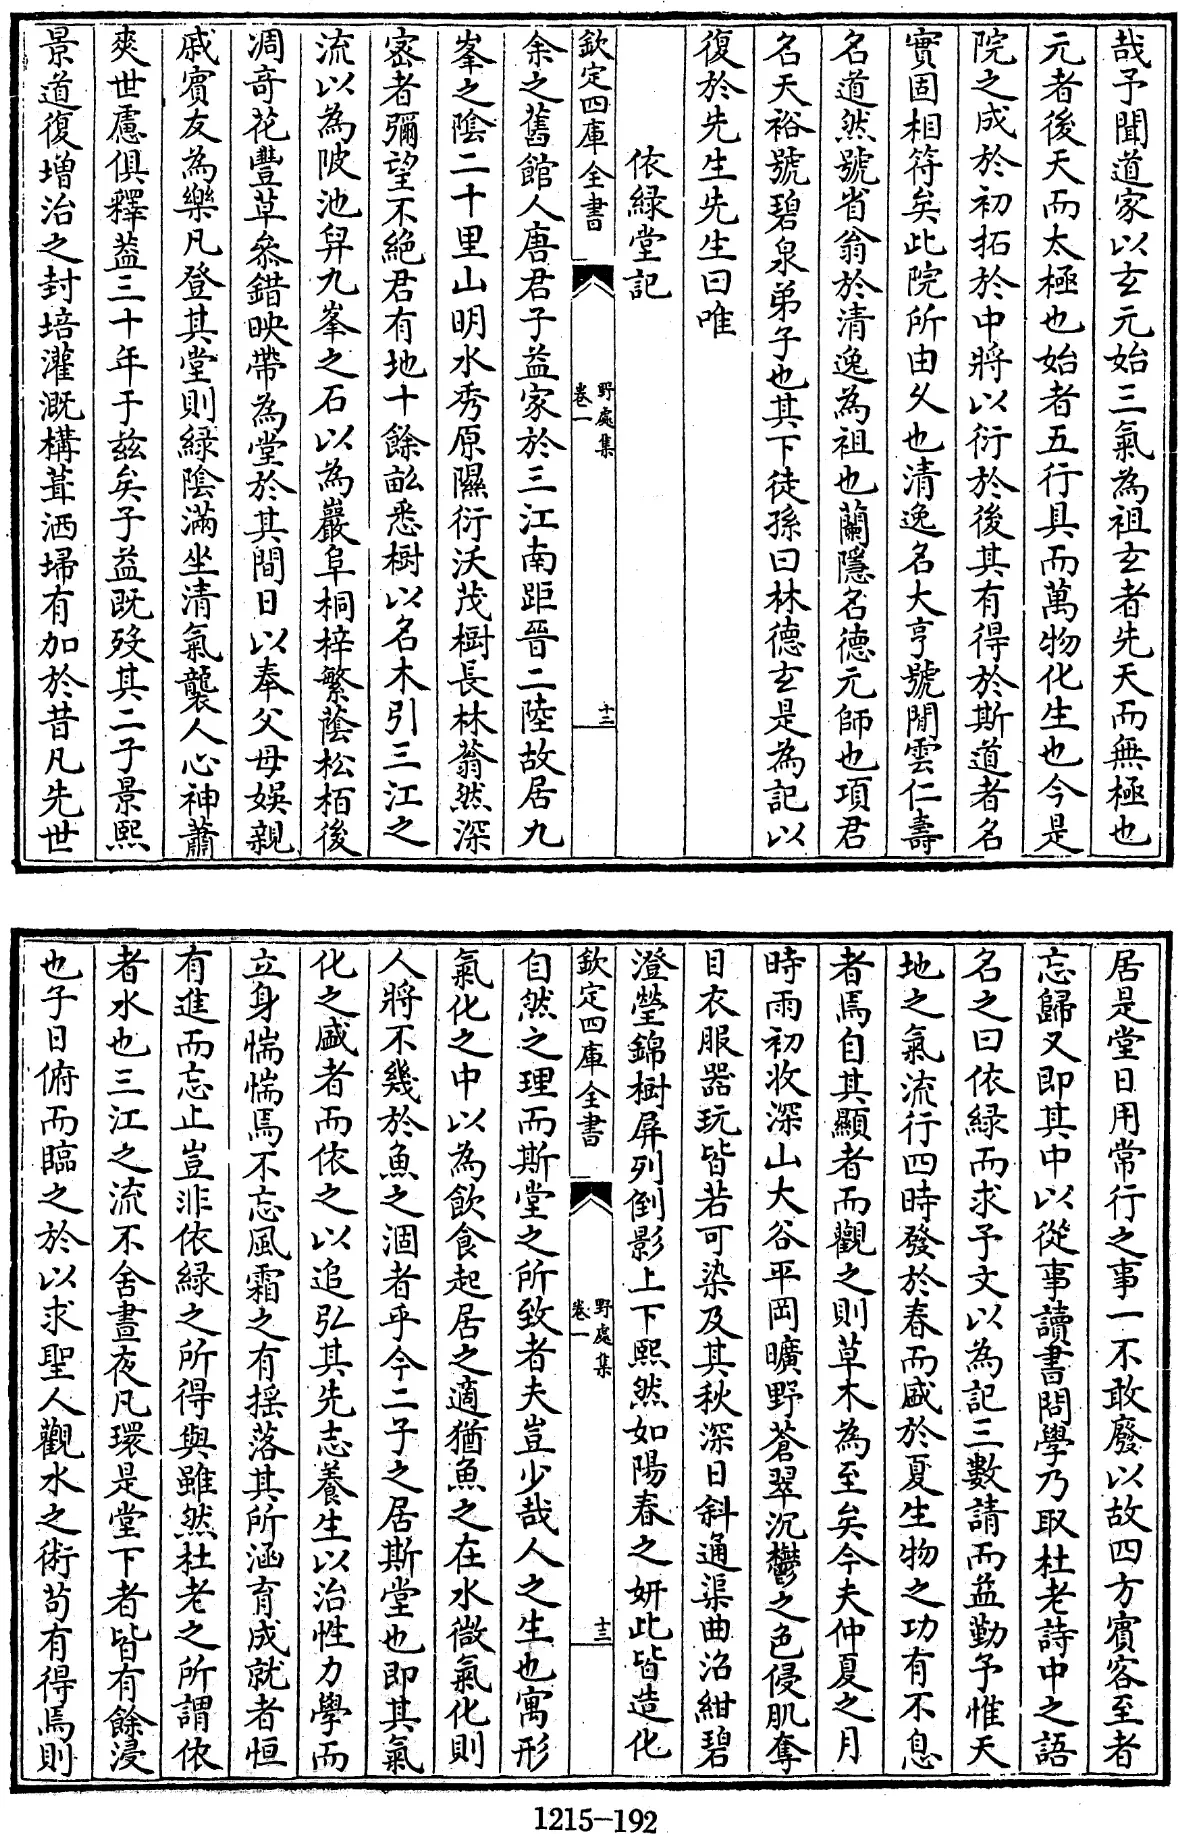 哉予聞道家以玄元始三氣為祖玄者先天而無極也
元者後天而太極也始者五行具而萬物化生也今是
院之成於初拓於中將以衍於後其有得於斯道者名
實固相符矣此院所由久也清逸名大亨號閒雲仁壽
名道然號省翁於清逸為祖也蘭隱名德元師也項君
名天裕號碧泉弟子也其下徒孫曰林德玄是為記以
復於先生先生曰唯
依緑堂記
欽定四庫全書
野處集
卷一
十二
余之舊館人唐君子益家於三江南距晉二陸故居九
峯之陰二十里山明水秀原隰衍沃茂樹長林蓊然深
宻者彌望不絶君有地十餘畝悉樹以名木引三江之
流以為陂池舁九峯之石以為巖阜桐梓繁蔭松栢後
凋奇花豐草叅錯映帶為堂於其間日以奉父母娯親
戚賓友為樂凡登其堂則緑陰滿坐清氣襲人心神蕭
爽世慮俱釋葢三十年于兹矣子益既殁其二子景熙
景道復増治之封培灌溉構葺洒埽有加於昔凡先世
居是堂日用常行之事一不敢廢以故四方賓客至者
忘歸又即其中以從事讀書問學乃取杜老詩中之語
名之曰依緑而求予文以為記三數請而益勤予惟天
地之氣流行四時發於春而盛於夏生物之功有不息
者焉自其顯者而觀之則草木為至矣今夫仲夏之月
時雨初收深山大谷平岡曠野蒼翠沉鬱之色侵肌奪
目衣服器玩皆若可染及其秋深日斜通渠曲沼紺碧
澄瑩錦樹屏列倒影上下熙然如陽春之妍此皆造化
欽定四庫全書
野處集
卷一
十三
自然之理而斯堂之所致者夫豈少哉人之生也寓形
氣化之中以為飲食起居之適猶魚之在水微氣化則
人將不幾於魚之涸者乎今二子之居斯堂也即其氣
化之盛者而依之以追弘其先志養生以治性力學而
立身惴惴焉不忘風霜之有揺落其所涵育成就者恒
有進而忘止豈非依緑之所得與雖然杜老之所謂依
者水也三江之流不舍晝夜凡環是堂下者皆有餘浸
也子日俯而臨之於以求聖人觀水之術茍有得焉則
1215-192